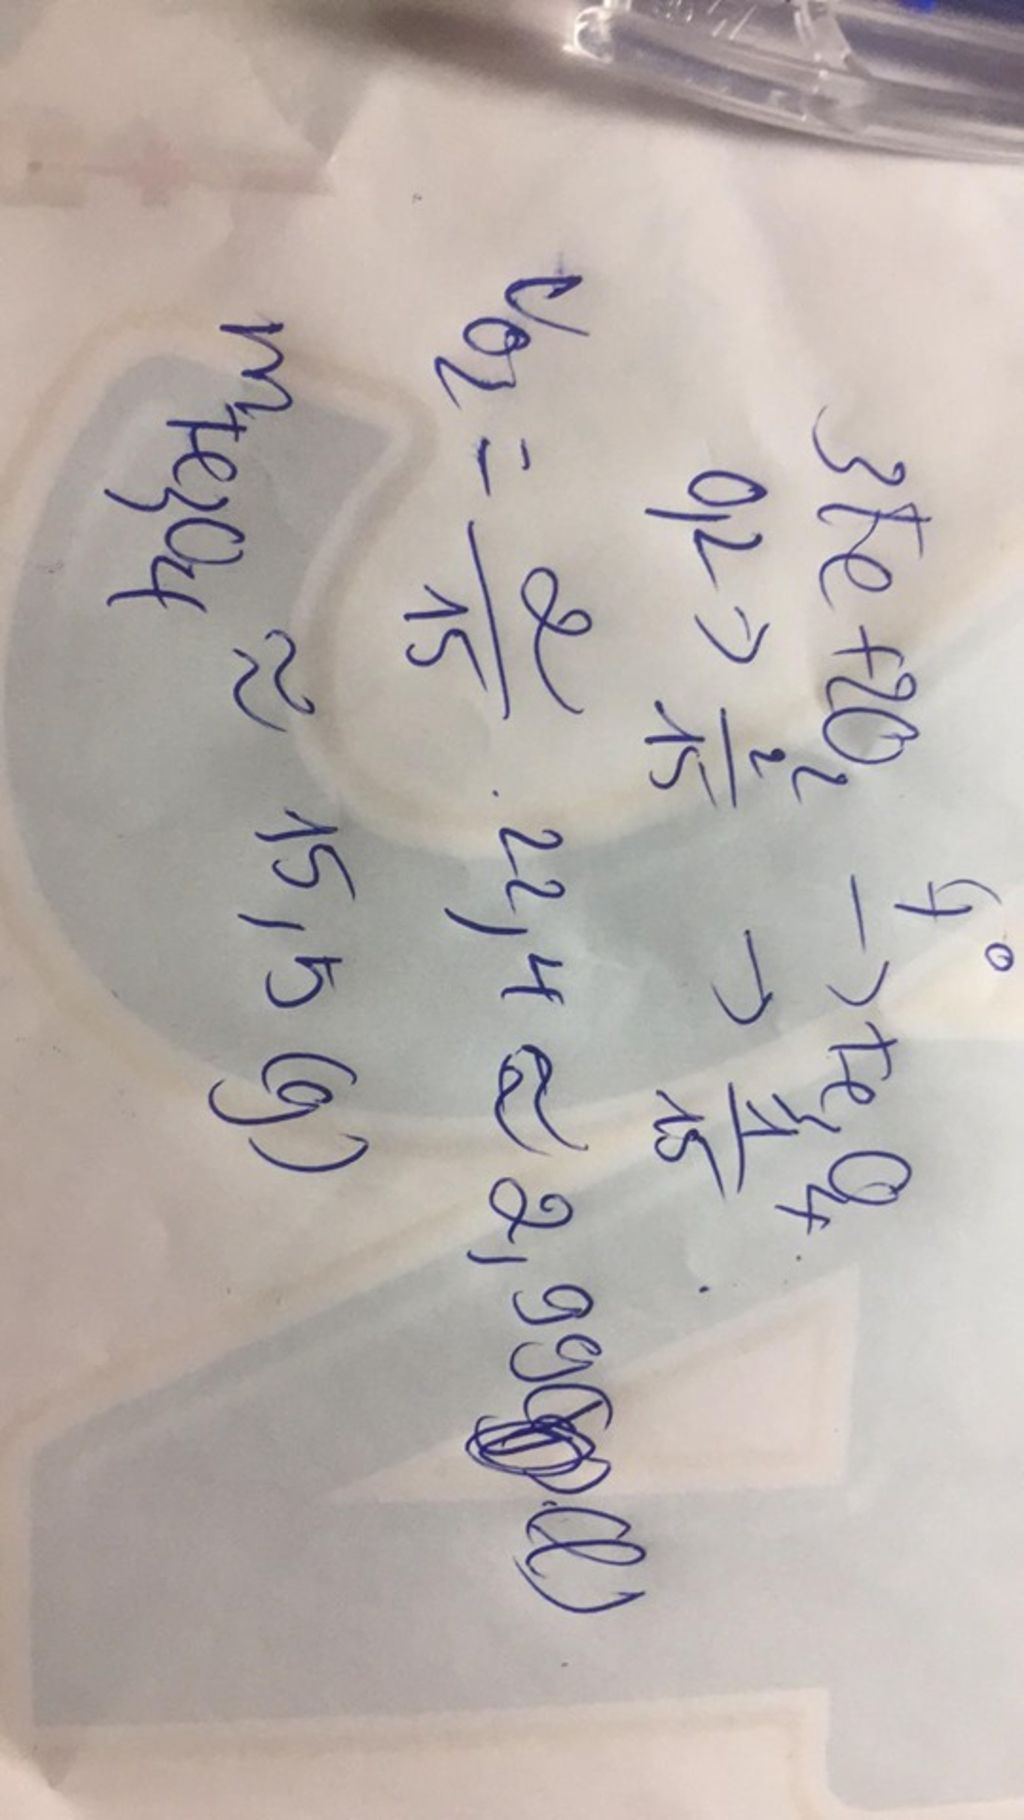 3Fe + 2O2 t°→ Fe3O4
0,2 → 2/15 → 1/15
VO2 = 2/15 . 22,4 ≈ 2,99 (l)
mFe3O4 ≈ 15,5 (g)